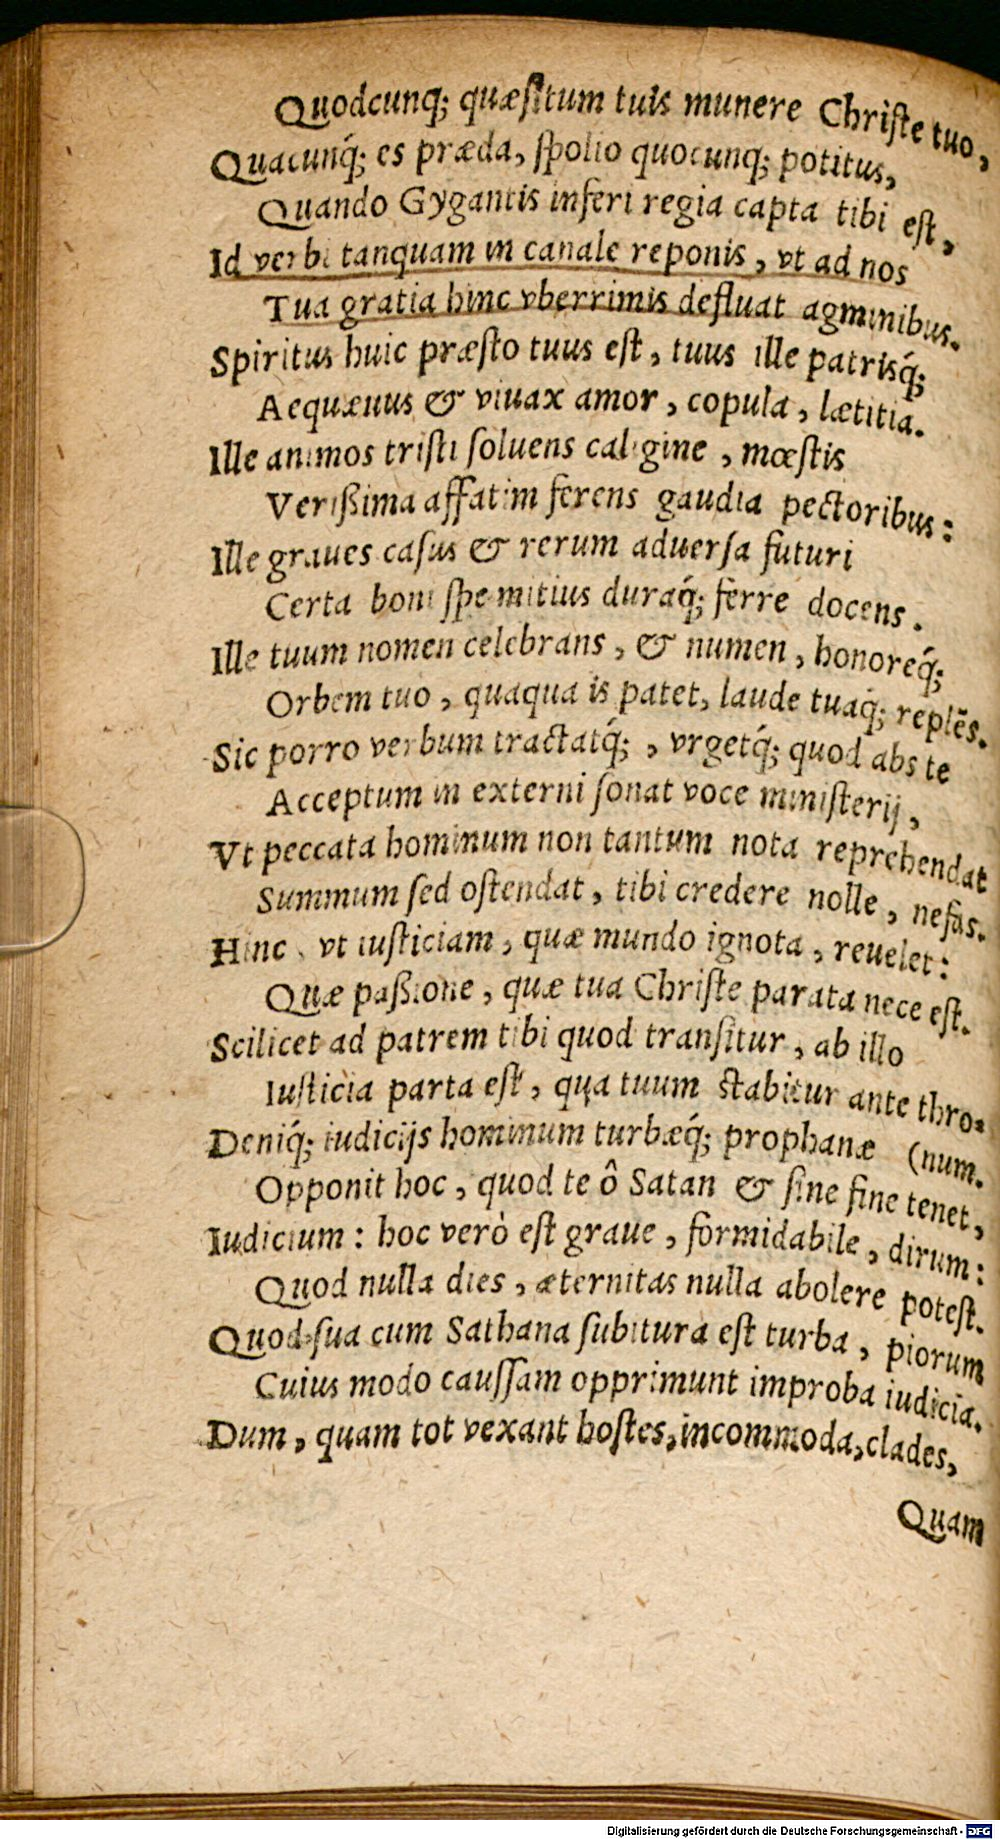 Quodcunq; quæſitum tuis munere Chriſte tuo,
Quacunq́; es præda, ſpolio quocunq; potitus,
Quando Gygantis inferi regia capta tibi eſt,
Id verbi tanquam in canale reponis, vt ad nos
Tua gratia hinc vberrimis defluat agminibus.
Spiritus huic præſto tuus eſt, tuus ille patrisq́;
Aequæuus & viuax amor, copula, lætitia.
Ille animos triſti ſoluens caligine, mœſtis
Verißima affatim ferens gaudia pectoribus:
Ille graues caſus & rerum aduerſa futuri
Certa boni ſpe mitius duraq́; ferre docens.
Ille tuum nomen celebrans, & numen, honoreq́;
Orbem tuo, quaqua is patet, laude tuaq́; replēs.
Sic porro verbum tractatq́;, vrgetq́; quod abs te
Acceptum in externi ſonat voce miniſterij,
Vt peccata hominum non tantum nota reprehendat
Summum ſed oſtendat, tibi credere nolle, nefas.
Hinc, vt iuſticiam, quæ mundo ignota, reuelet:
Quæ paßione, quæ tua Chriſte parata nece eſt.
Scilicet ad patrem tibi quod tranſitur, ab illo
Iuſticia parta eſt, qua tuum ſtabitur ante thro-
Deniq́; iudicijs hominum turbæq́; prophanæ (num.
Opponit hoc, quod te ô Satan & ſine fine tenet,
Iudicium: hoc verò eſt graue, formidabile, dirum:
Quod nulla dies, æternitas nulla abolere poteſt.
Quod ſua cum Sathana ſubitura eſt turba, piorum
Cuius modo cauſſam opprimunt improba iudicia.
Dum, quam tot vexant hoſtes, incommoda, clades,
Quam
Digitalisierung gefördert durch die Deutsche Forschungsgemeinschaft - DFG